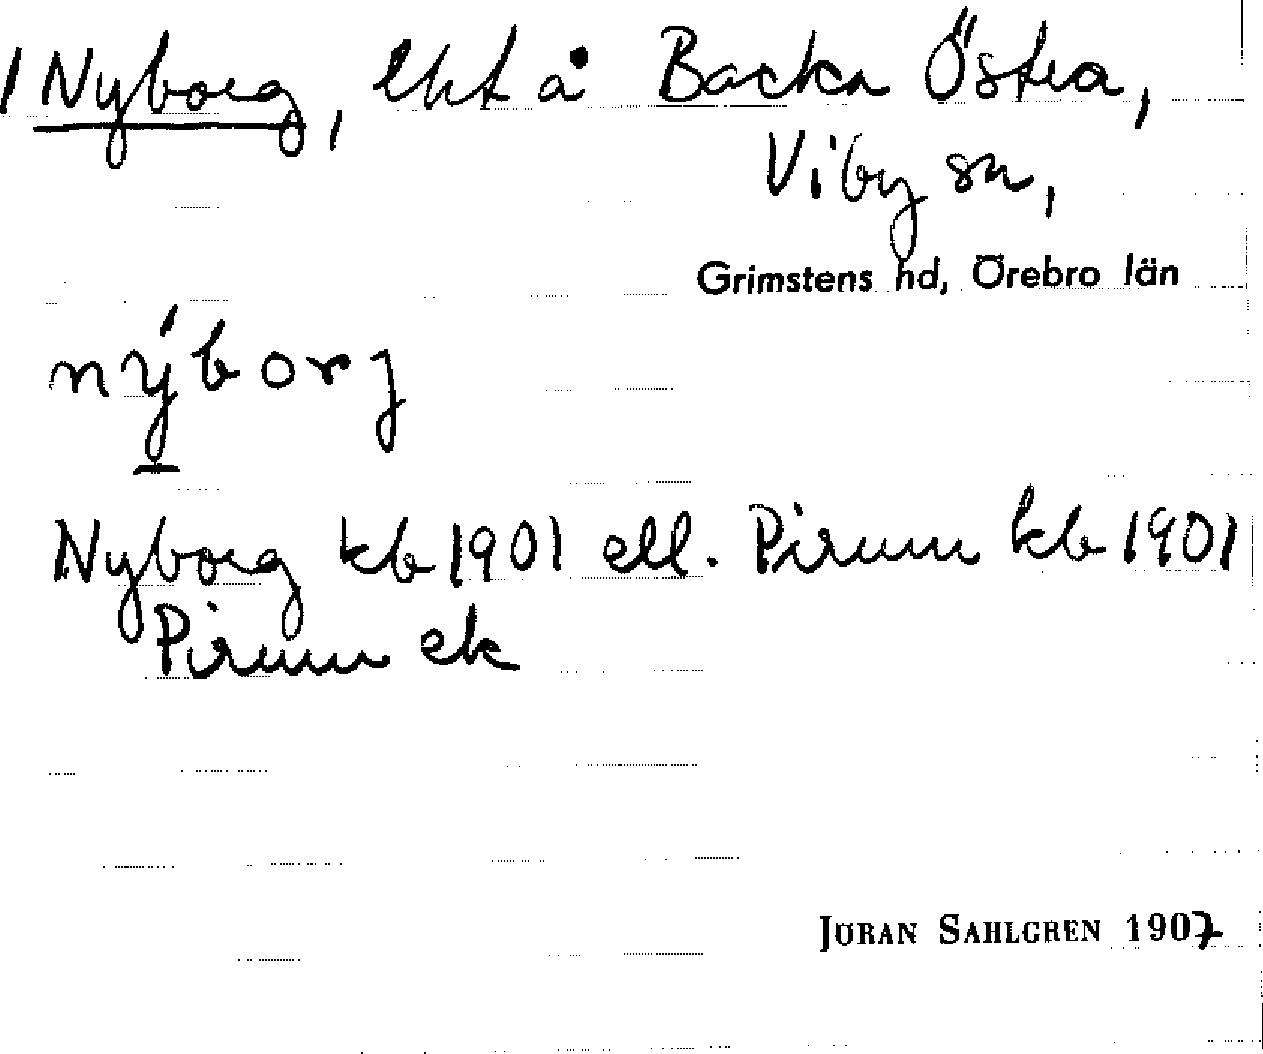 / Nyborg, lht å Backa Östra,
Viby sn,
Grimstens hd, Örebro län
nýborj
Nyborg kb 1901 ell. Pirum kb 1901
Pirum ek
JÖRAN SAHLGREN 1907